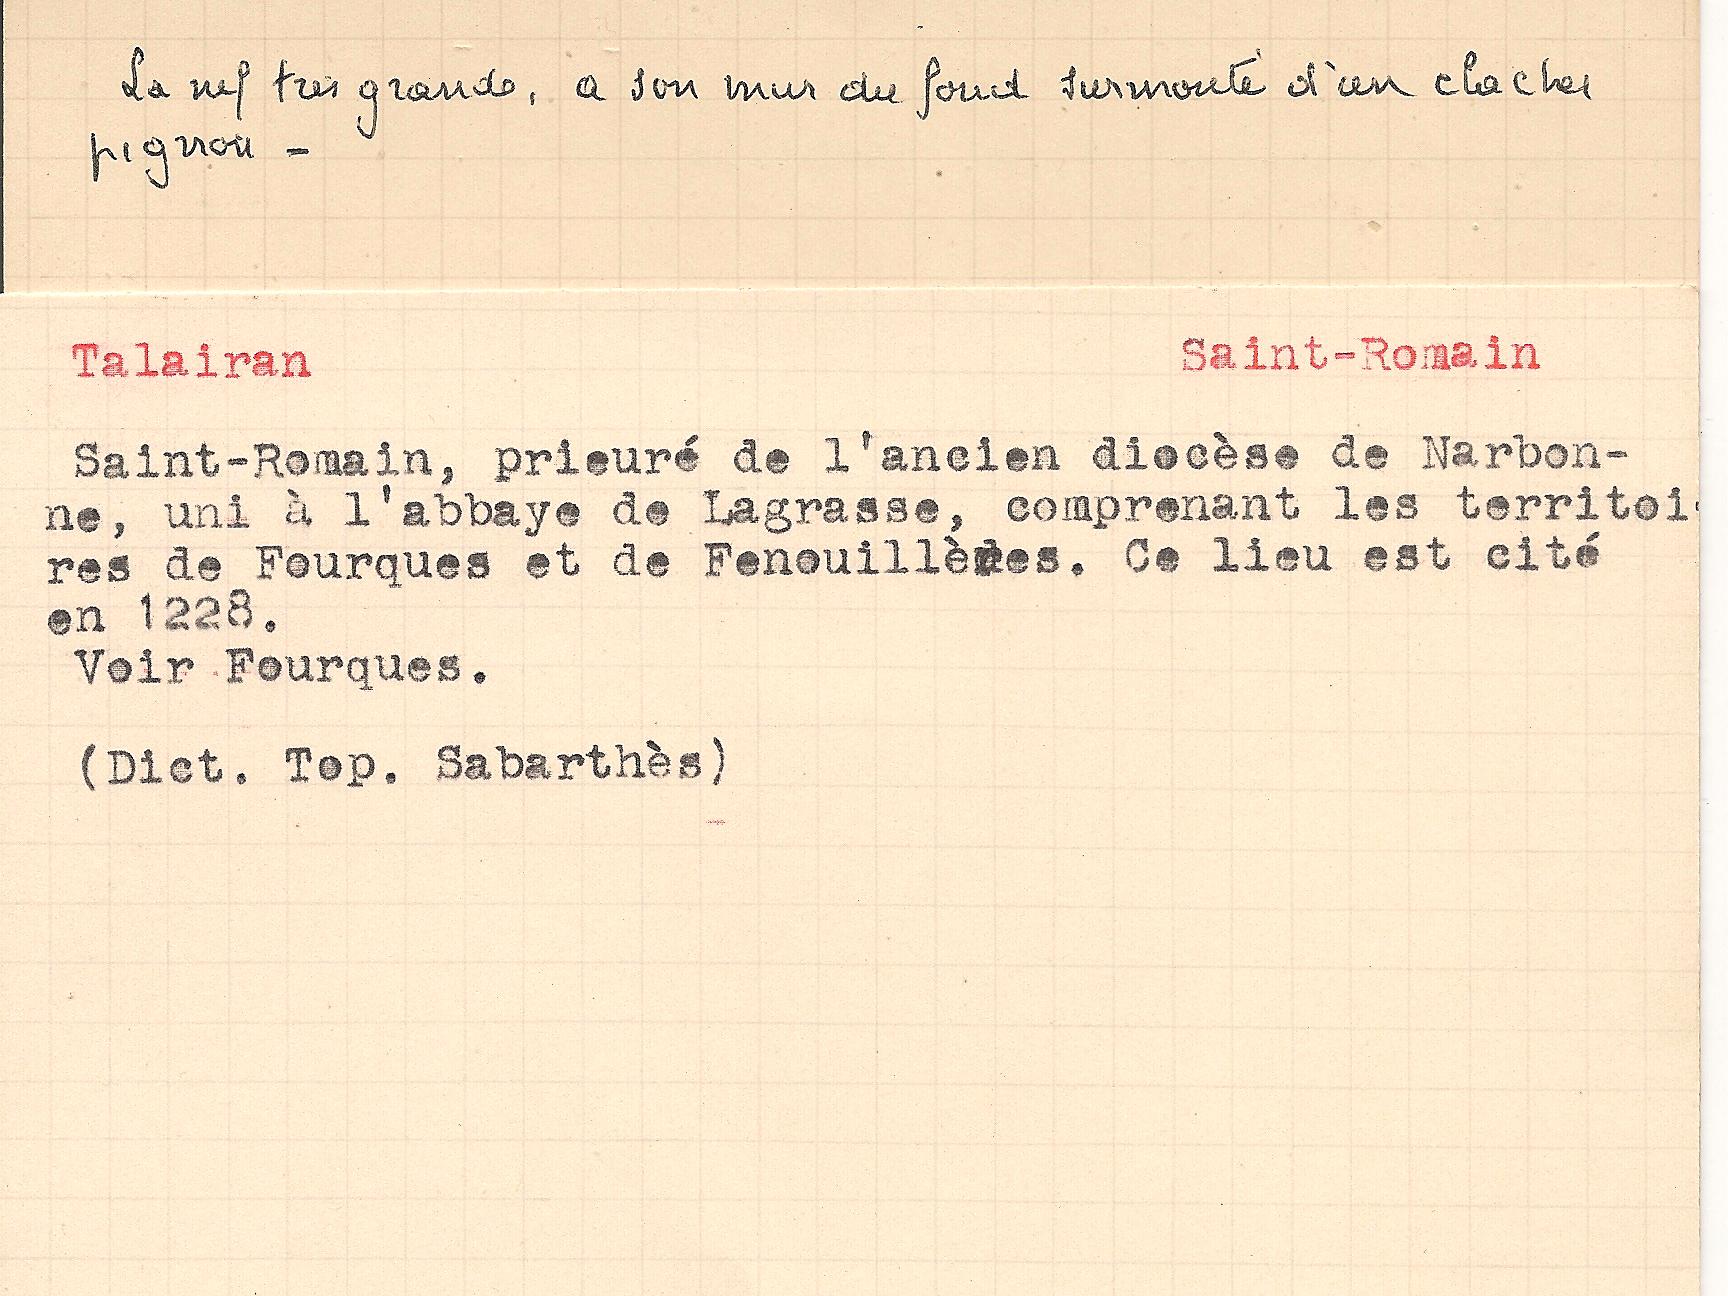 La nef très grande, a son mur du fond surmonté d'un clocher
pignon -
Talairan Saint-Romain
Saint-Romain, prieuré de l'ancien diocèse de Narbon-
ne, uni à l'abbaye de Lagrasse, comprenant les territoi-
res de Fourques et de Fenouillèdes. Ce lieu est cité
en 1228.
Voir Fourques.
(Dict. Top. Sabarthès)